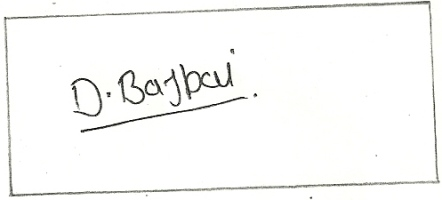 D. Bajbai